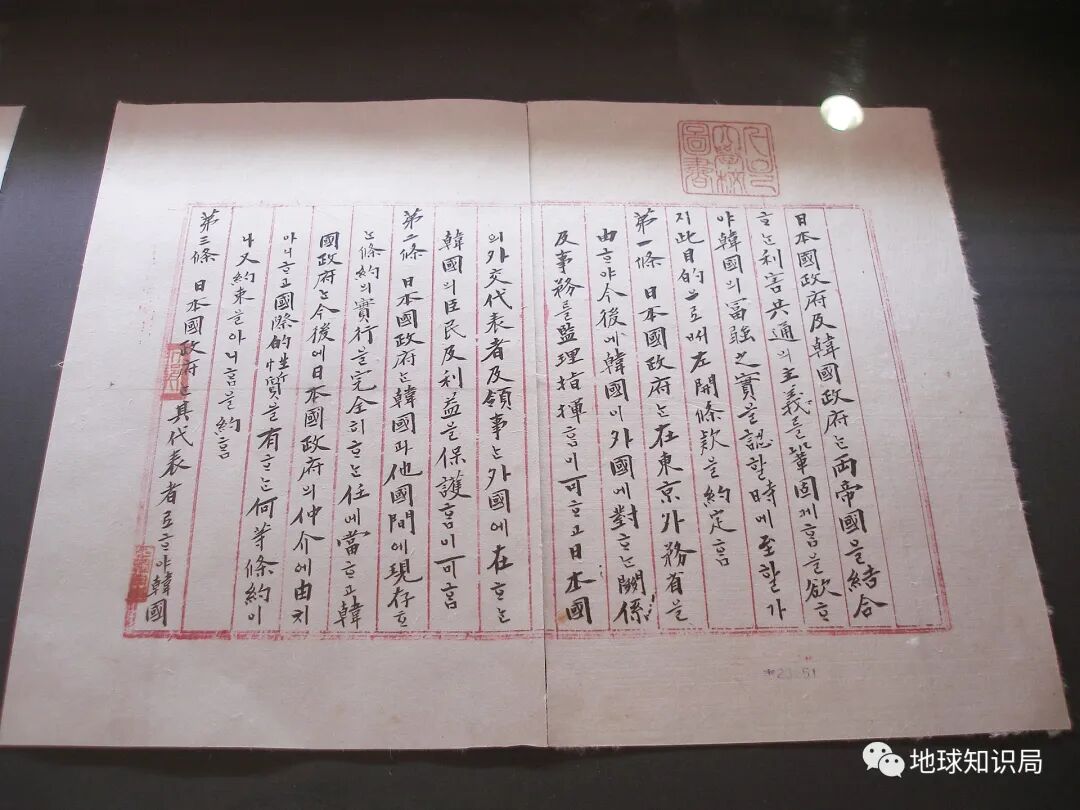 日本國政府及韓國政府ᄂᆞᆫ両帝國을結合
ᄒᆞᄂᆞᆫ利害共通의主義를鞏固케홈을欲ᄒᆞ
야韓國의冨强之實을認ᄒᆞᆯ時에至ᄒᆞᆯ가
지此目的으로써左開條款을約定홈
第一條 日本國政府ᄂᆞᆫ在東京外務省을
由ᄒᆞ야今後에韓國이外國에對ᄒᆞᄂᆞᆫ關係
及事務를監理指揮홈이可ᄒᆞ고日本國
의外交代表者及領事ᄂᆞᆫ外國에在ᄒᆞᄂᆞᆫ
韓國의臣民及利益을保護홈이可홈
第二條 日本國政府ᄂᆞᆫ韓國과他國間에現存ᄒᆞ
ᄂᆞᆫ條約의實行을完全히ᄒᆞᄂᆞᆫ任에當ᄒᆞ고韓
國政府ᄂᆞᆫ今後에日本國政府의仲介에由치
아니ᄒᆞ고國際的性質을有ᄒᆞᄂᆞᆫ何等條約이
나又約束을아니홈을約홈
第三條 日本國政府ᄂᆞᆫ其代表者로ᄒᆞ야韓國
地球知识局